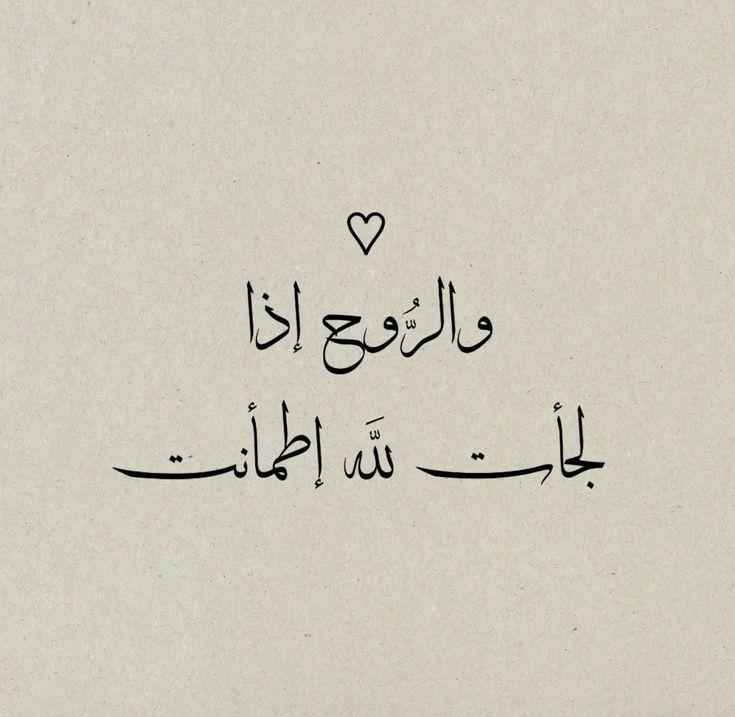 ♡
والرُّوح إذا
لجأت للَّه إطمأنت